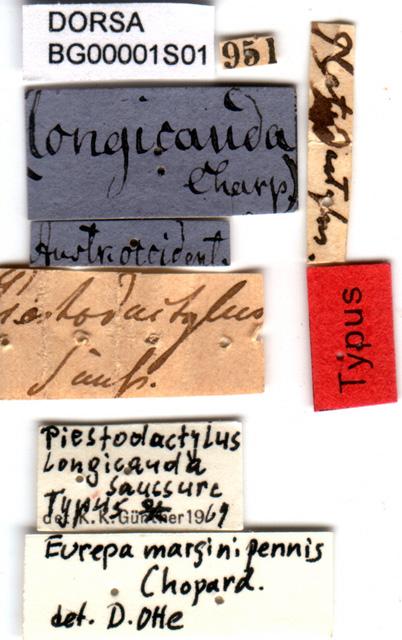 DORSA
BG00001S01
951
longicauda
Charp.
Austr. occident.
Piestodactylus
Sauss.
Typus
Piestodactylus
Longicauda
Saussure
Typus
det. K. K. Günther 1969
Eurepa marginipennis
Chopard.
det. D. Otte